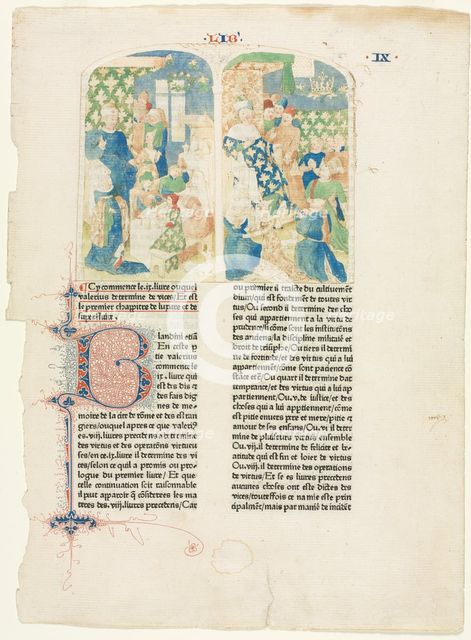 ·LIB·
IX
Cy commence le.ix.liure ouquel
valerius determine de vices/Et est
le premier chappitre de luxure et de
Blandini etiã
En ceste p̃
tie valerius
commence le
ix.liure qui
est des dis et
des fais dig
nes de me
moire de la cite de rome et des estran
giers/ouquel apres ce que valeri9
es.viij.liures precedens a determine
des virtus et des operations virtueu
ses/en ce.ix.liure il determine des vi
ces/selon ce quil a promis ou pro
logue du premier liure/Et que
celle continuation soit raisonnable
il puet apparoir q̃ cõsiderees les ma
teres des.viij.liures precedens/Car
ou premier il traicte du cultiuement
diuin/qui est fondement de toutes vir
tus/Ou second il determine des cho
ses qui appartiennent a la virtu de
prudence/si cõme sont les institucions
des anciens/la discipline militaire et
droit de triumphe/Ou tiers il determi
ne de fortitude/et des virtus qui a lui
appartiennent/si cõme sont pacience cõ
stace etc̃/Ou quart il determine dat
temprance/et des virtus qui a lui ap
partiennent/Ou.v.de iustice/et des
choses qui a luy appartiennent/si cõme
est pitie enuers pere et mere/pitie et
amour de ses enfans/Ou.vi.il deter
mine de pluiseurs virtus ensemble
Ou.vij.il determine de felicite et be
atitude qui est fin et loier de virtus
Ou.viij.il determine des operations
de virtus/Et se es liures precedens
aucunes choses ont este dictes des
vices/touteffois ce na mie este prin
cipalmẽt/mais par maniẽ de incidẽt